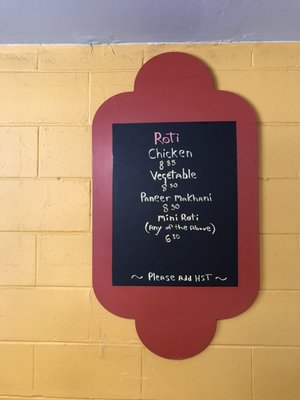 Roti
Chicken
8 95
Vegetable
8 50
Paneer Makhani
8 50
Mini Roti
(Any of the Above)
6 50
~ Please Add HST ~